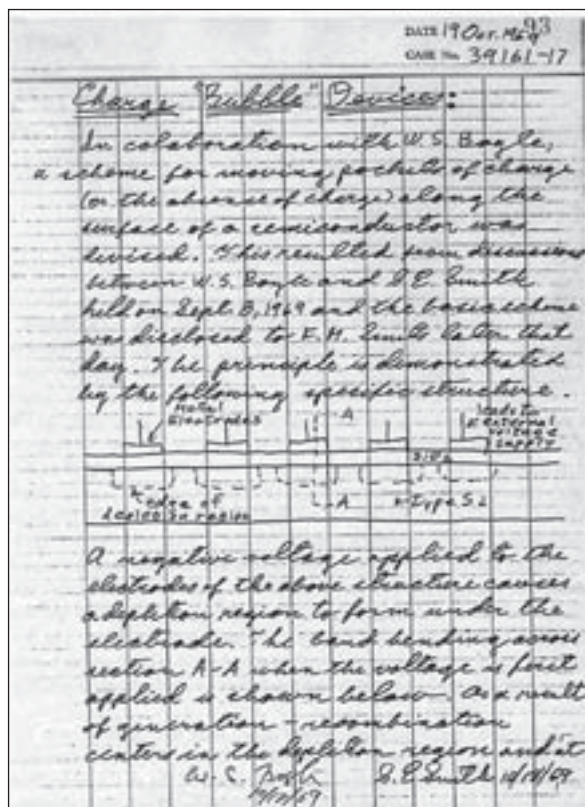 93
DATE 19 Oct. 1969
CASE No. 39161-17
Charge "Bubble" Devices:
In colaboration with W.S. Boyle,
a scheme for moving pockets of charge
(or the absence of charge) along the
surface of a semiconductor was
devised. This resulted from discussions
between W.S. Boyle and G E. Smith
held on Sept. 8, 1969 and the basic scheme
was disclosed to F.M. Smits later that
day. The principle is demonstrated
by the following specific structure.
Metal
Electrodes
A
leads to
external
voltage
supply
SiO2
edge of
depletion region
A
n-Type Si
A negative voltage applied to the
electrodes of the above structure causes
a depletion region to form under the
electrode. The band bending across
section A-A when the voltage is first
applied is shown below. As a result
of generation - recombination
centers in the depletion region and at
W. S. Boyle G E Smith 10/19/69